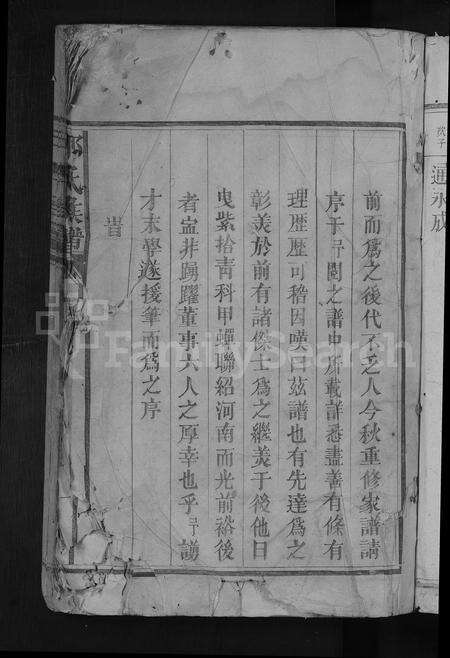 前而為之後代不乏人今秋重修家譜請
序于予閱之譜中所載詳悉盡善有條有
理歷歷可稽因嘆曰茲譜也有先達為之
彰美於前有諸傑士為之繼美于後他日
曳紫拾青科甲蟬聯紹河南而光前裕後
者盍非踴躍董事六人之厚幸也乎予謭
才末學遂援筆而為之序
旹
氏族譜
通永成
FamilySearch